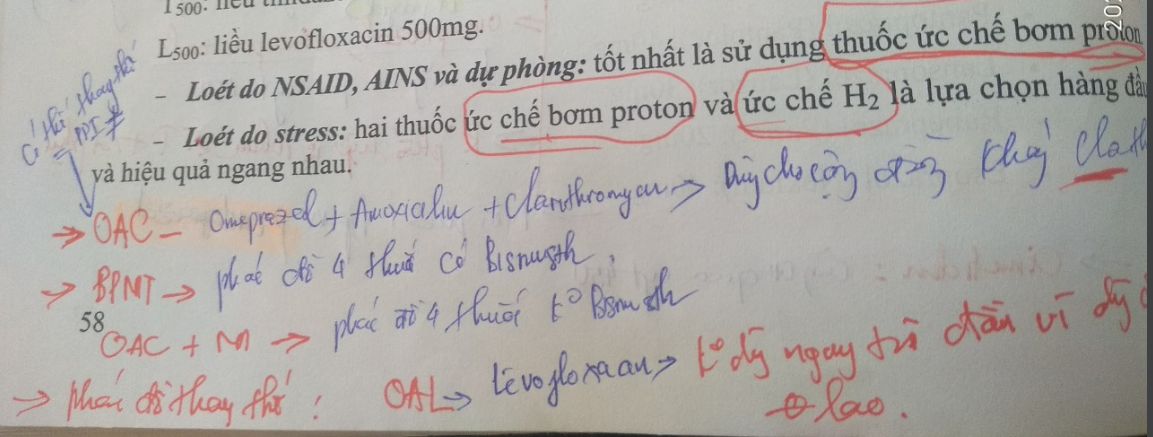 L500: liều levofloxacin 500mg.
- Loét do NSAID, AINS và dự phòng: tốt nhất là sử dụng thuốc ức chế bơm proton
- Loét do stress: hai thuốc ức chế bơm proton và ức chế H2 là lựa chọn hàng đầu
và hiệu quả ngang nhau.
Có thể thay thế
PPI ≠
→ OAC - Omeprazol + Amoxicilin + Clarithromycin → Dùng cho cộng đồng kháng Clarith
→ BPMT → phác đồ 4 thuốc có Bismuth
58
OAC + M → phác đồ 4 thuốc k° Bismuth
→ Phác đồ thay thế : OAL → Levofloxacin → k° dùng ngay từ đầu vì
lao.